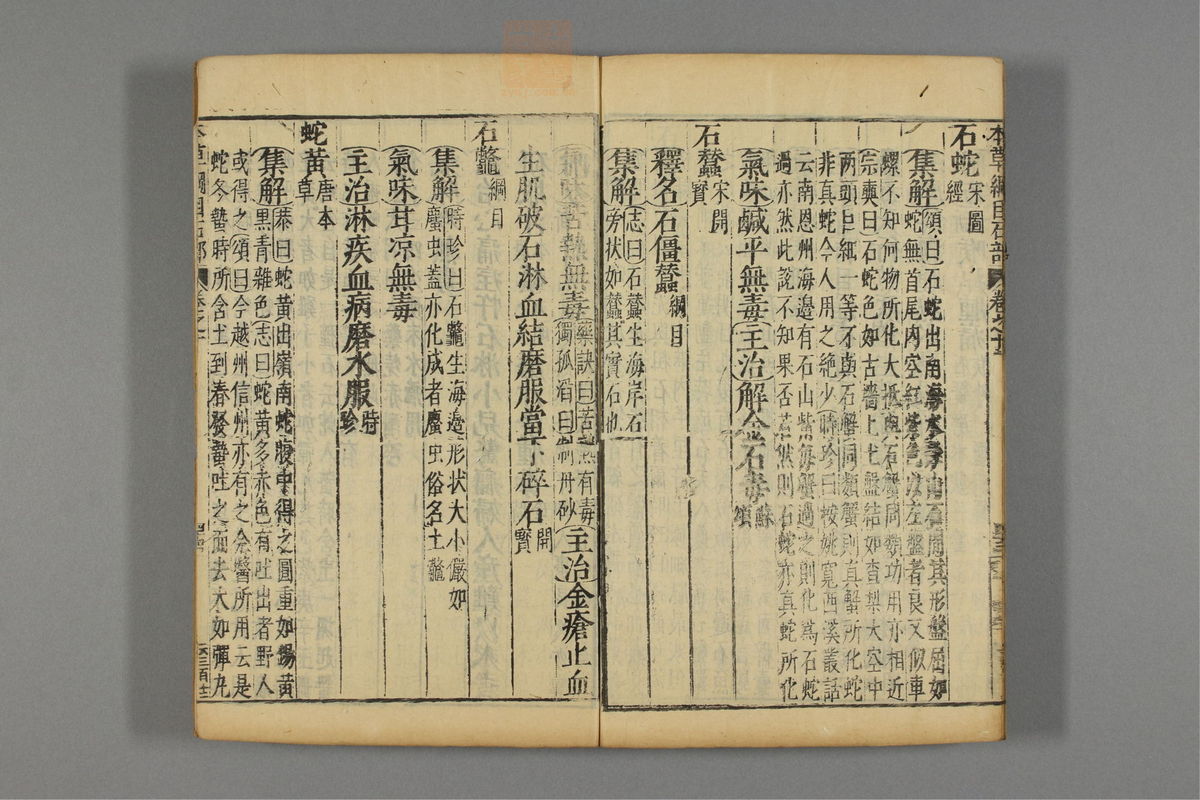 本草綱目石部
石蛇宋圖經
集解頌曰石蛇出南海水旁山石間其形盤屈如
蛇無首尾內空紅紫色以左盤者良又似車
螺不知何物所化大抵與石蟹同類功用亦相近
宗奭曰石蛇色如古牆上土盤結如查梨大空中
兩頭巨細一等不與石蟹同類蟹則真蟹所化蛇
非真蛇今人用之絶少時珍曰按姚寬西溪叢話
云南恩州海邊有石山紫海蟹過之則化爲石蛇
過亦然此說不知果否若然則石蛇亦真蛇所化
氣味鹹平無毒主治解金石毒蘇頌
石蠶宋開寶
釋名石僵蠶綱目
集解志曰石蠶生海岸石
旁狀如蠶其實石也
氣味苦熱無毒藥訣曰苦熱有毒
獨孤滔曰制丹砂主治金瘡止血
生肌破石淋血結磨服當下碎石開寶
石鼈綱目
集解時珍曰石鼈生海邊形状大小儼如
䗪虫蓋亦化成者䗪虫俗名土鼈
氣味甘凉無毒
主治淋疾血病磨水服時珍
蛇黃唐本草
集解恭曰蛇黃出嶺南蛇腹中得之圓重如錫黃
黑青雜色志曰蛇黃多赤色有吐出者野人
或得之頌曰今越州信州亦有之今醫所用云是
蛇冬蟄時所含土到春發蟄吐之而去大如彈丸
本草綱目石部